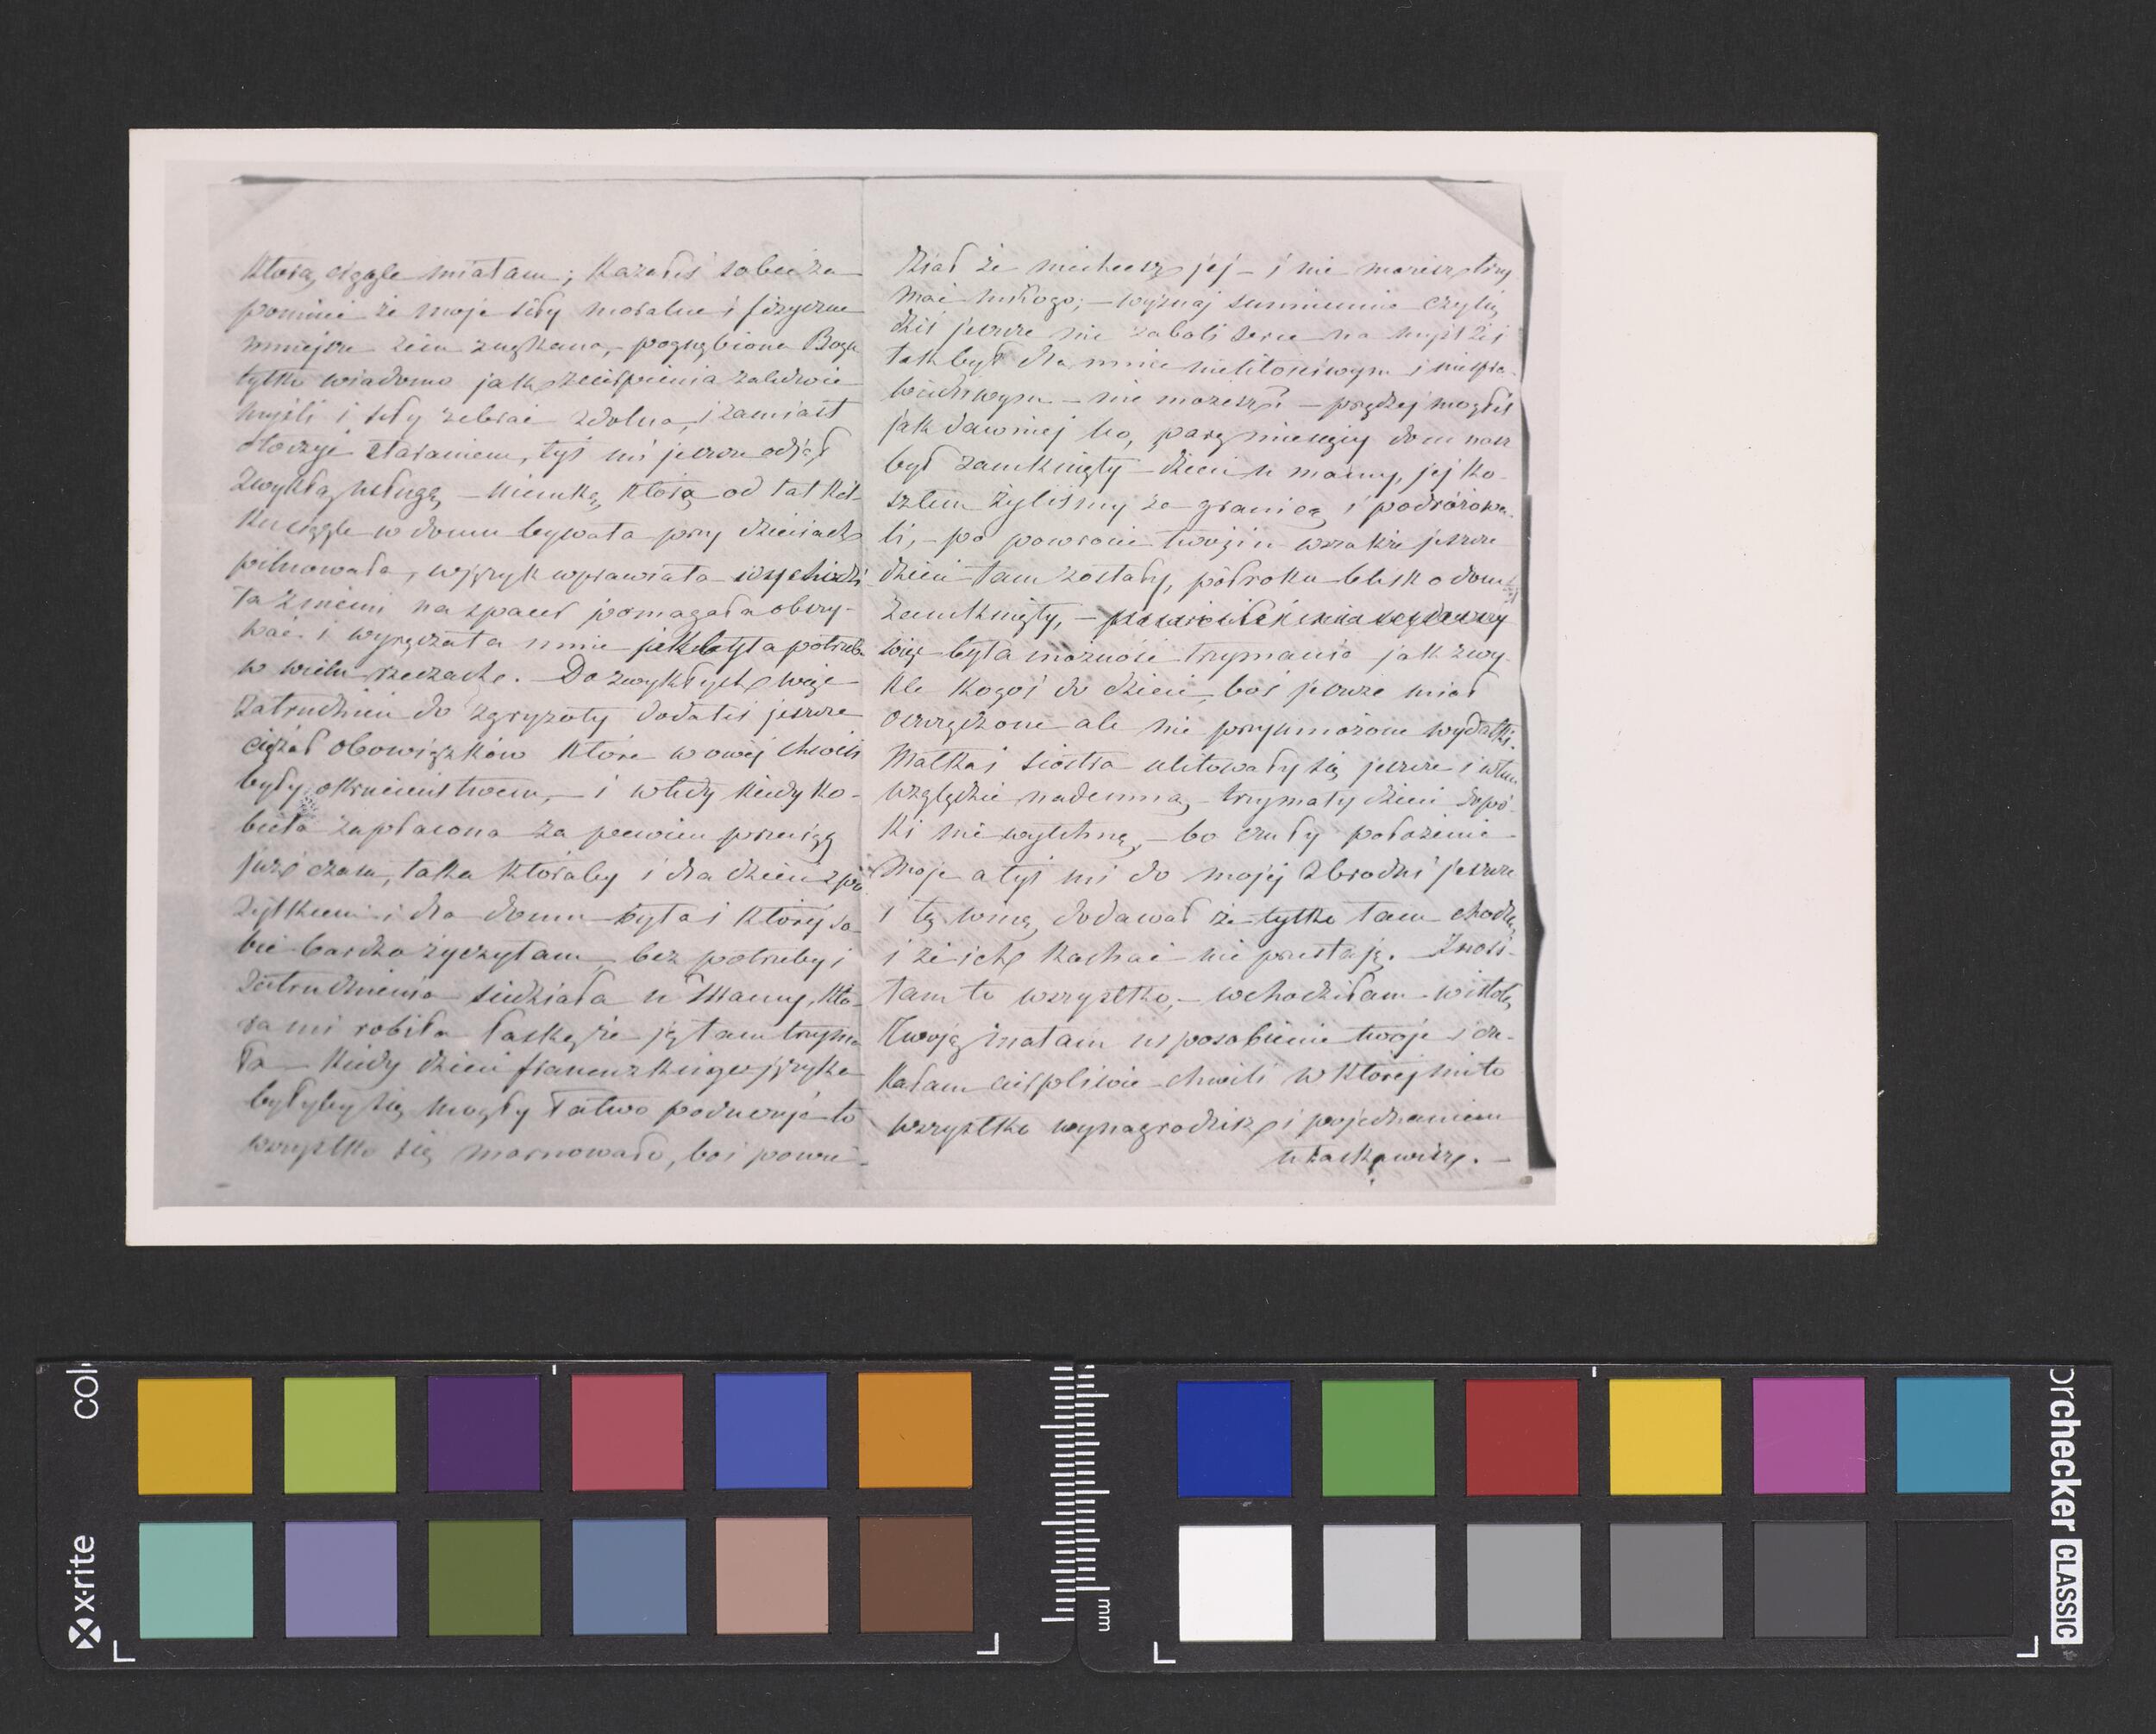 którą ciągle miałam; kazałeś sobie za-
pomnieć że moje siły moralne i fizyczne
mniejsze żem znękana, pognębiona Bogu
tylko wiadomo jak zaledwie
myśli i siły zebrać zdolna, i zamiast
otoczyć staraniem, tyś mi jeszcze odjął
zwykłą usługę, – Niemkę, którą od lat kil-
ku ciągle w domu bywała przy dzieciach
pilnowała, w język wprawiała wychodzi-
ła z niemi na spacer pomagała obszy-
wać i wyręczała mnie jak była potrzeba
w wielu rzeczach. Do zwykłych więc
zatrudnień do zgryzoty dodałeś jeszcze
ciężar obowiązków które w owej chwili
były okrucieństwem, – i wtedy kiedy ko-
bieta zapłacona za pewien przeciąg
już czasu, taka któraby i dla dzieci z po-
żytkiem i dla domu była i której so-
bie bardzo życzyłam, bez potrzeby i
zatrudnienia siedziała u Mamy, któ-
ra mi robiła łaskę że ją tam trzyma-
ła – kiedy dzieci francuzkiego języka
byłyby się mogły łatwo poduczyć to
wszystko się marnowało, boś powie-
dział że niechcesz jej – i nie możesz trzy-
mać nikogo; – wyznaj sumiennie czyliż
dziś jeszcze nie zaboli serce na myśl żeś
tak był dla mnie nielitościwym i niespra-
wiedliwym – nie możesz? – prędzej mogłeś
jak dawniej bo, parę miesięcy dom nasz
był zamknięty – dzieci u mamy, jej ko-
sztem żyliśmy za granicą i podróżowa-
li, – po powrocie twoim wszakże jeszcze
dzieci tam zostały, pół roku blisko dom był
zamknięty, –
więc była możność trzymania jak zwy-
kle kogoś do dzieci, boś jeszcze miał
oszczędzone ale nie przymnożone wydatki.
Matka i siostra ulitowały się jeszcze i w tem
względzie nademną, – trzymały dzieci dopó-
ki nie wytchnę, – bo czuły położenie
moje a tyś mi do mojej zbrodni jeszcze
i tę winę, dodawał że tylko tam chodzą
i że ich kochać nie przestaję. Znosi-
łam to wszystko, – wchodziłam w istotę
Twoją znałam usposobienie twoje i cze-
kałam cierpliwie chwili w której mi to
wszystko wynagrodzisz i pojednaniem
ułaskawisz. –
x-rite
col
mm
orchecker CLASSIC